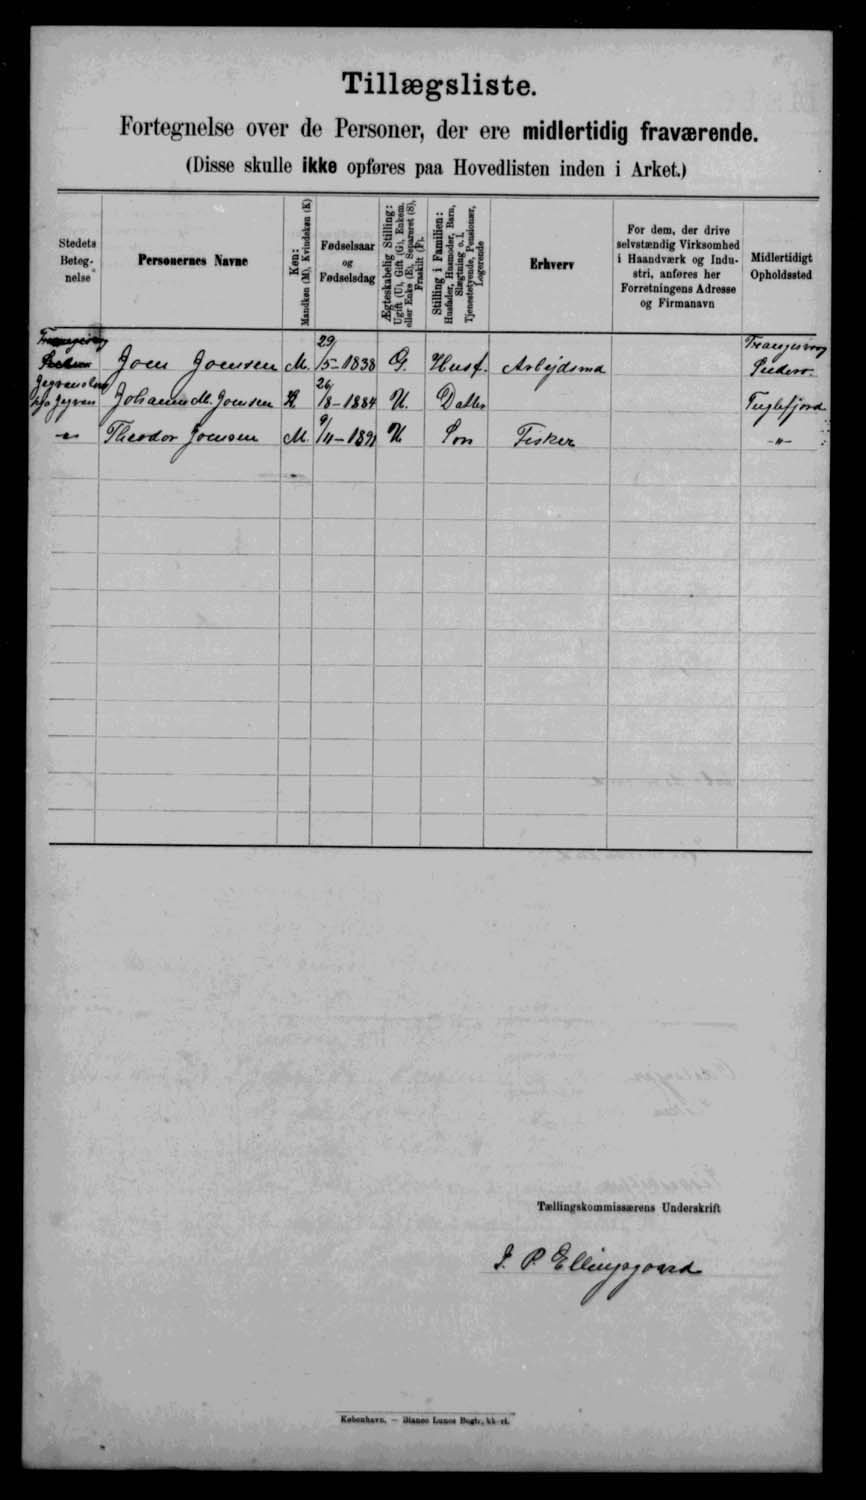 Tillægsliste.
Fortegnelse over de Personer, der ere midlertidig fraværende.
(Disse skulle ikke opføres paa Hovedlisten inden i Arket.)
Stedets
Beteg-
nelse
Personernes Navne
Køn:
Mandkøn (M), Kvindekøn (K)
Fødselsaar
og
Fødselsdag
Ægteskabelig Stilling:
Ugift (U), Gift (G), Enkem.
eller Enke (E), Separeret (S),
Fraskilt (F).
Stilling i Familien:
Husfader, Husmoder, Barn,
Slægtning o. l.
Tjenestetyende, Pensionær,
Logerende
Erhverv
For dem, der drive
selvstændig Virksomhed
i Haandværk og Indu-
stri, anføres her
Forretningens Adresse
og Firmanavn
Midlertidigt
Opholdssted
Joen Joensen M. 29/5-1838 G. Husf. Arbejdsmd Trangisvaag
Suderø
Johanne M. Joensen K 26/8-1884 U. Datter Fuglefjord
-"- Theodor Joensen M. 9/4-1891 U Søn Fisker -"-
Tællingskommissærens Underskrift
J. P. Ellingsgaard
København. — Bianco Lunos Bogtr.